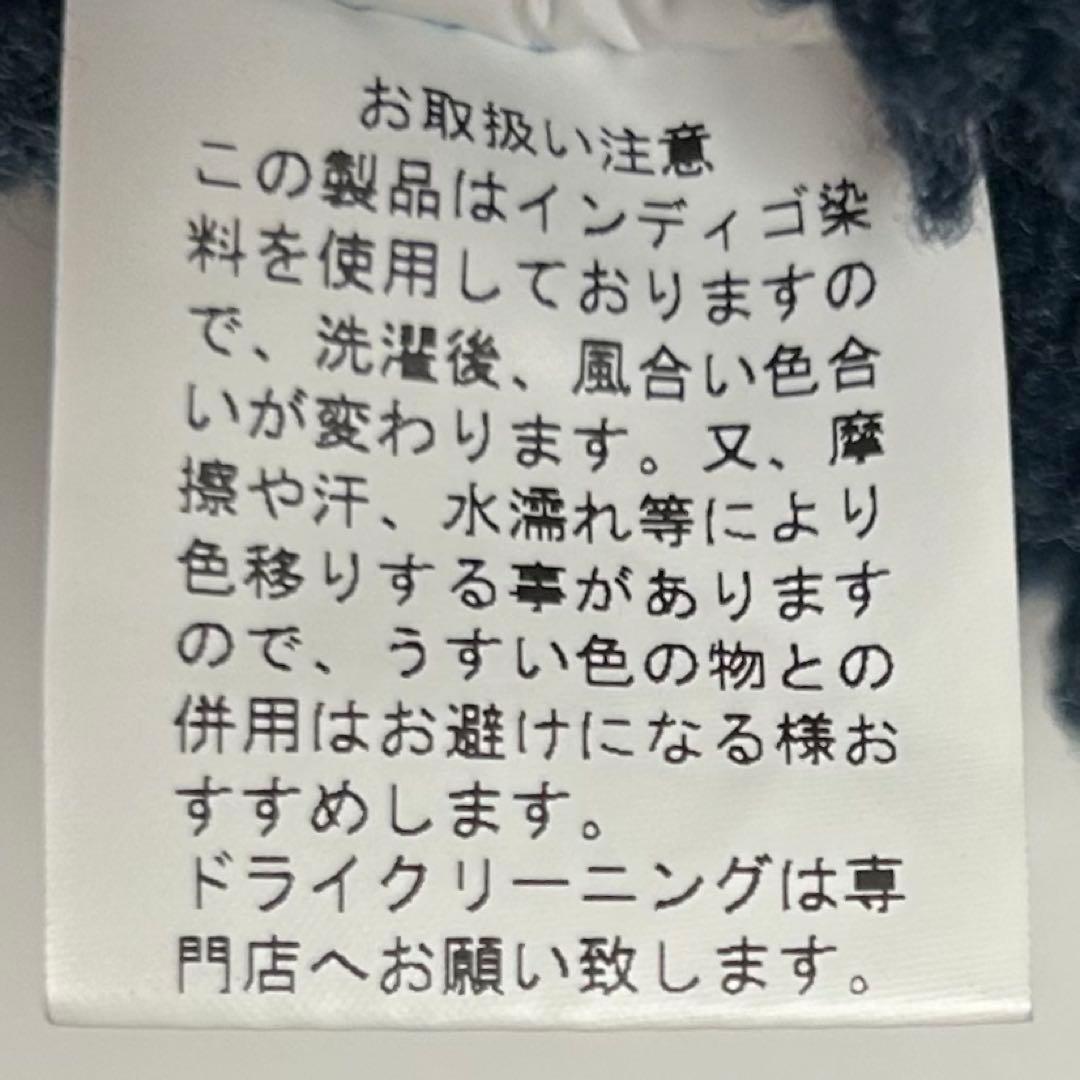 お取扱い注意
この製品はインディゴ染
料を使用しておりますの
で、洗濯後、風合い色合
いが変わります。又、摩
擦や汗、水濡れ等により
色移りする事があります
ので、うすい色の物との
併用はお避けになる様お
すすめします。
ドライクリーニングは専
門店へお願い致します。